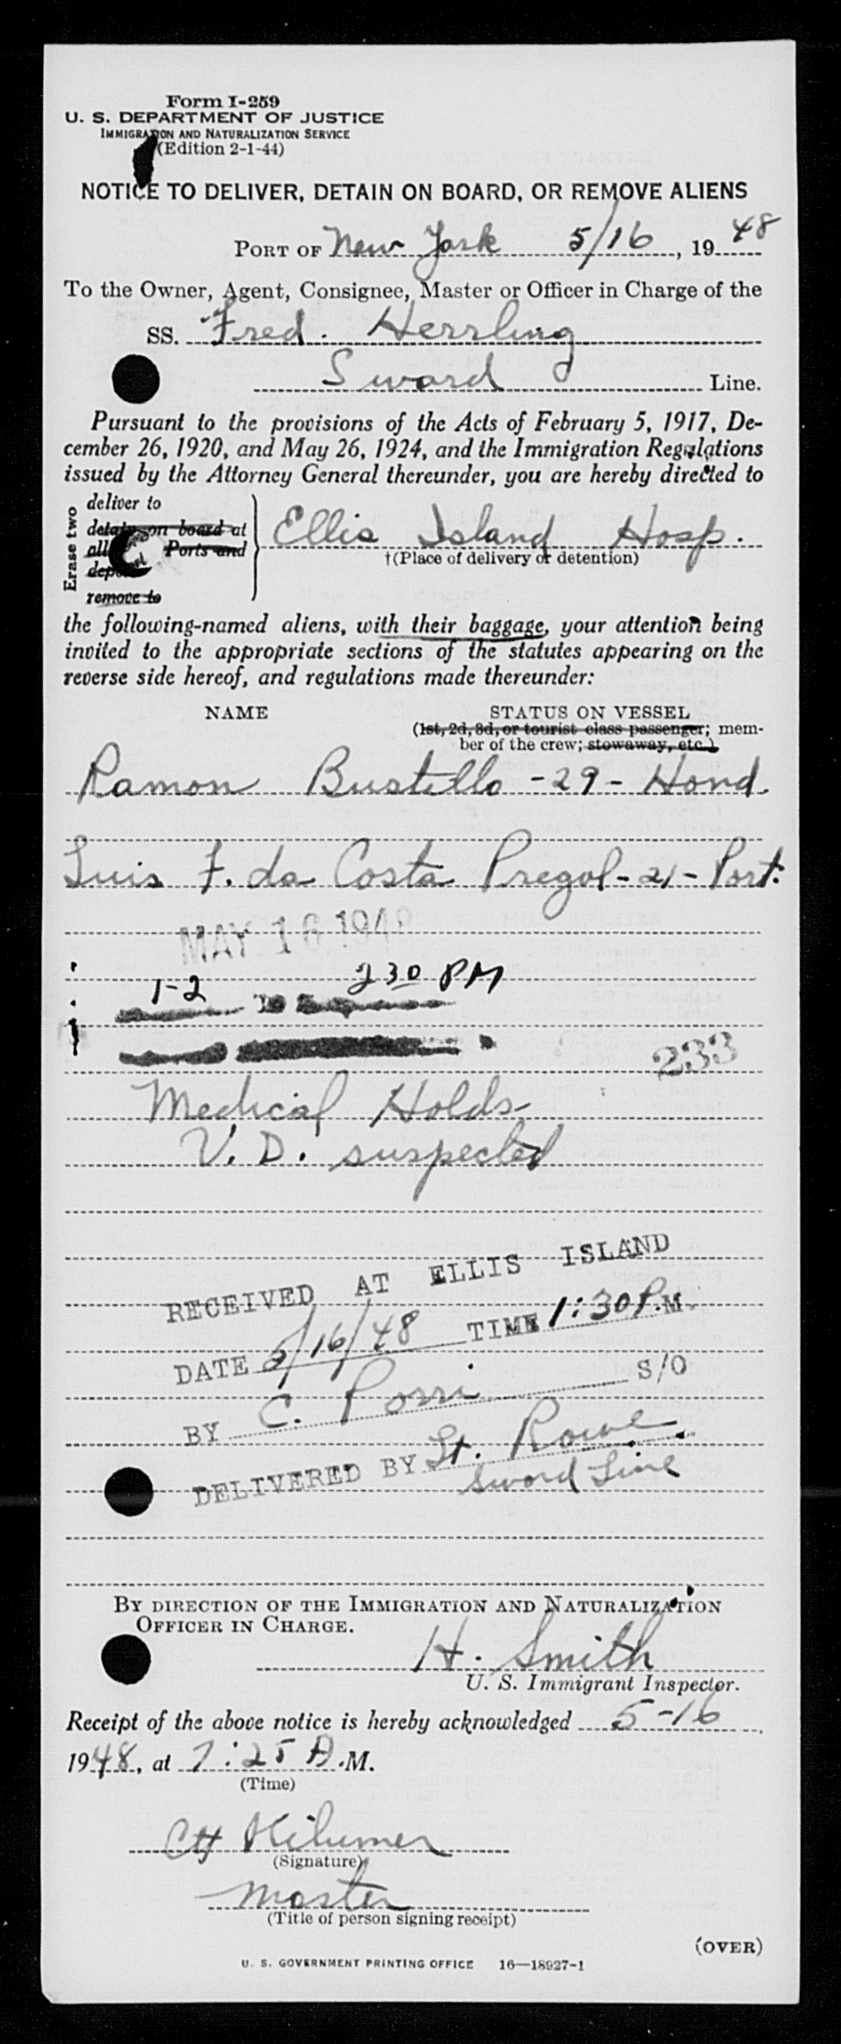 Form I-259
U. S. DEPARTMENT OF JUSTICE
IMMIGRATION AND NATURALIZATION SERVICE
(Edition 2-1-44)
NOTICE TO DELIVER, DETAIN ON BOARD, OR REMOVE ALIENS
PORT OF New York 5/16, 1948
To the Owner, Agent, Consignee, Master or Officer in Charge of the
SS. Fred. Herrling
Sword Line.
Pursuant to the provisions of the Acts of February 5, 1917, De-
cember 26, 1920, and May 26, 1924, and the Immigration Regulations
issued by the Attorney General thereunder, you are hereby directed to
Erase two
deliver to
detain on board at
all Ports and
deport
remove to
Ellis Island Hosp.
†(Place of delivery or detention)
the following-named aliens, with their baggage, your attention being
invited to the appropriate sections of the statutes appearing on the
reverse side hereof, and regulations made thereunder:
NAME STATUS ON VESSEL
(1st, 2d, 3d, or tourist class passenger; mem-
ber of the crew; stowaway, etc.)
Ramon Bustillo - 29 - Hond.
Luis F. da Costa Pregol - 21 - Port.
MAY 16 1948
1-2 230 PM
233
Medical Holds
V. D. suspected
RECEIVED AT ELLIS ISLAND
DATE 5/16/48 TIME 1:30 P.M.
BY C. Porri S/O
DELIVERED BY Lt. Rowe
Sword Line
BY DIRECTION OF THE IMMIGRATION AND NATURALIZATION
OFFICER IN CHARGE.
H. Smith
U. S. Immigrant Inspector.
Receipt of the above notice is hereby acknowledged 5-16,
1948, at 7:25 A.M.
(Time)
(Signature)
Master
(Title of person signing receipt)
(OVER)
U. S. GOVERNMENT PRINTING OFFICE 16—18927-1